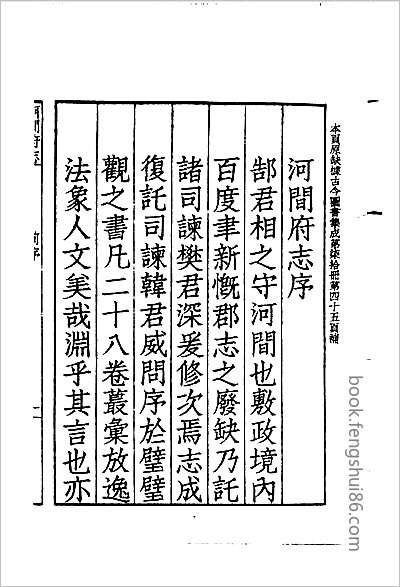 本頁原缺據古今圖書集成第柒拾冊第四十五頁補
河間府志序
郜君相之守河間也敷政境內
百度聿新慨郡志之廢缺乃託
諸司諫樊君深爰修次焉志成
復託司諫韓君威問序於璧璧
觀之書凡二十八卷叢彙放逸
法象人文美哉淵乎其言也亦
河間府志
前序
book.fengshui86.com